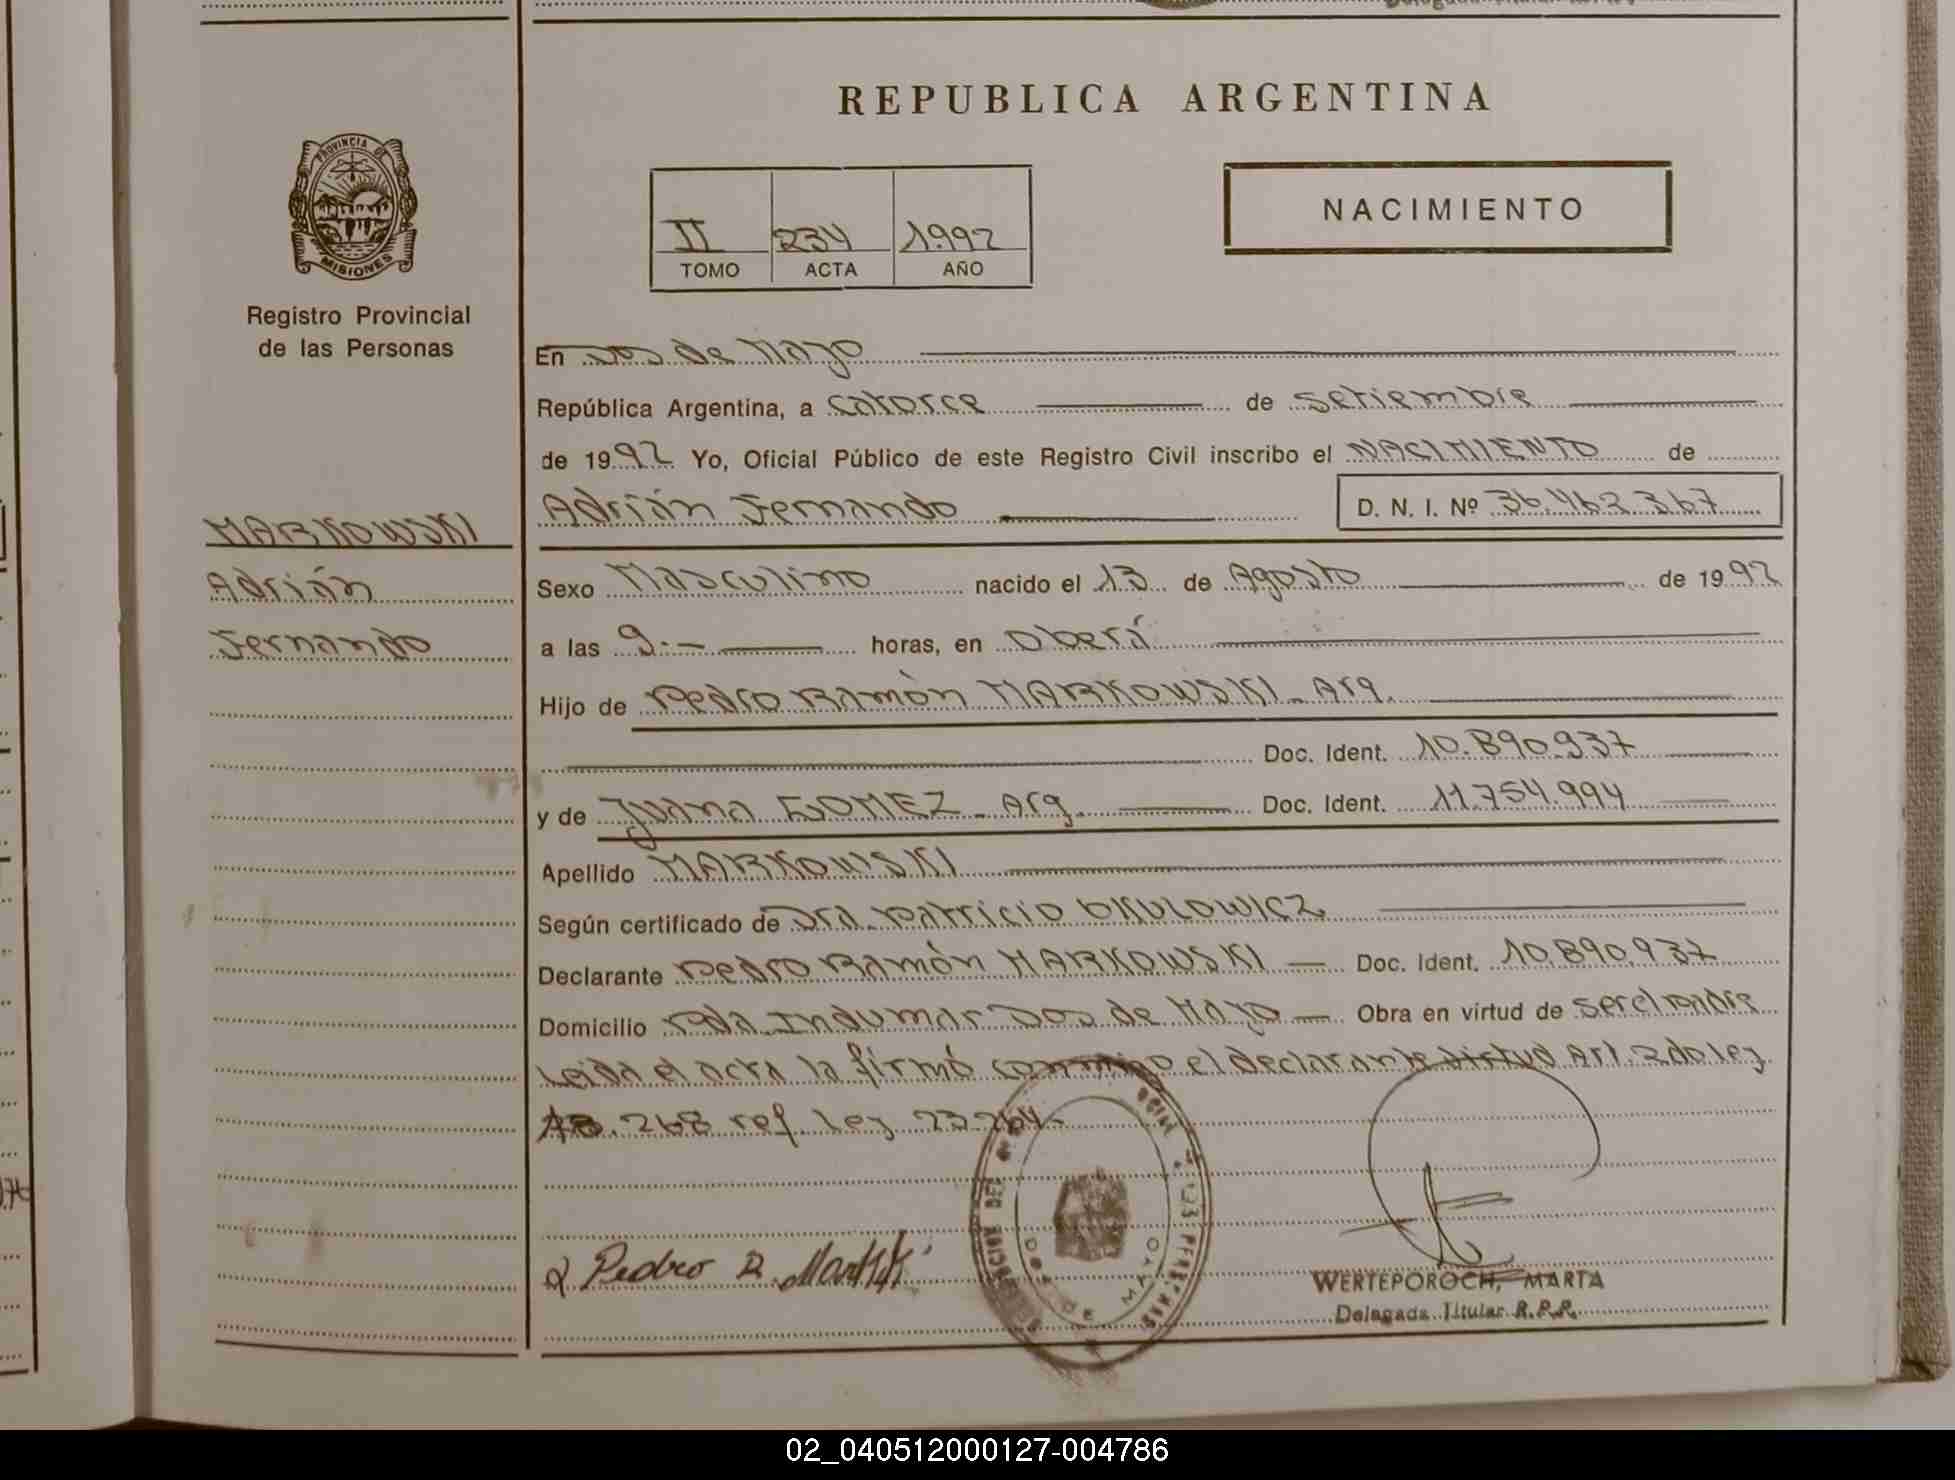 REPUBLICA ARGENTINA
PROVINCIA DE
MISIONES
Registro Provincial
de las Personas
II 234 1992
TOMO ACTA AÑO
NACIMIENTO
En Dos de Mayo
República Argentina, a catorce de setiembre
de 1992 Yo, Oficial Público de este Registro Civil inscribo el NACIMIENTO de
Adrián Fernando D. N. I. Nº 36.462.367
MARKOWSKI
Adrián
Fernando
Sexo Masculino nacido el 13 de Agosto de 1992
a las 9.- horas, en Oberá
Hijo de Pedro Ramón MARKOWSKI - Arg.
Doc. Ident. 10.890.937
y de Juana GOMEZ - Arg. Doc. Ident. 11.754.994
Apellido MARKOWSKI
Según certificado de Dra. Patricio OKULOWICZ
Declarante Pedro Ramón MARKOWSKI Doc. Ident. 10.890.937
Domicilio Pda. Indumar Dos de Mayo Obra en virtud de ser el padre
Leida el acta la firmó conmigo el declarante virtud Art. 2do ley
18.268 ref. ley 23.264.
DOS DE MAYO
Pedro R. Markowski
WERTEPOROCH, MARTA
Delegada Titular R.P.P.
02_040512000127-004786